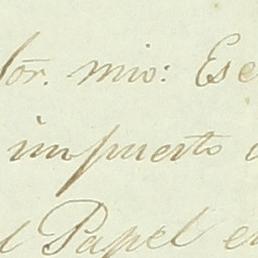 Sor. mio: Ese
impuesto
el Papel en